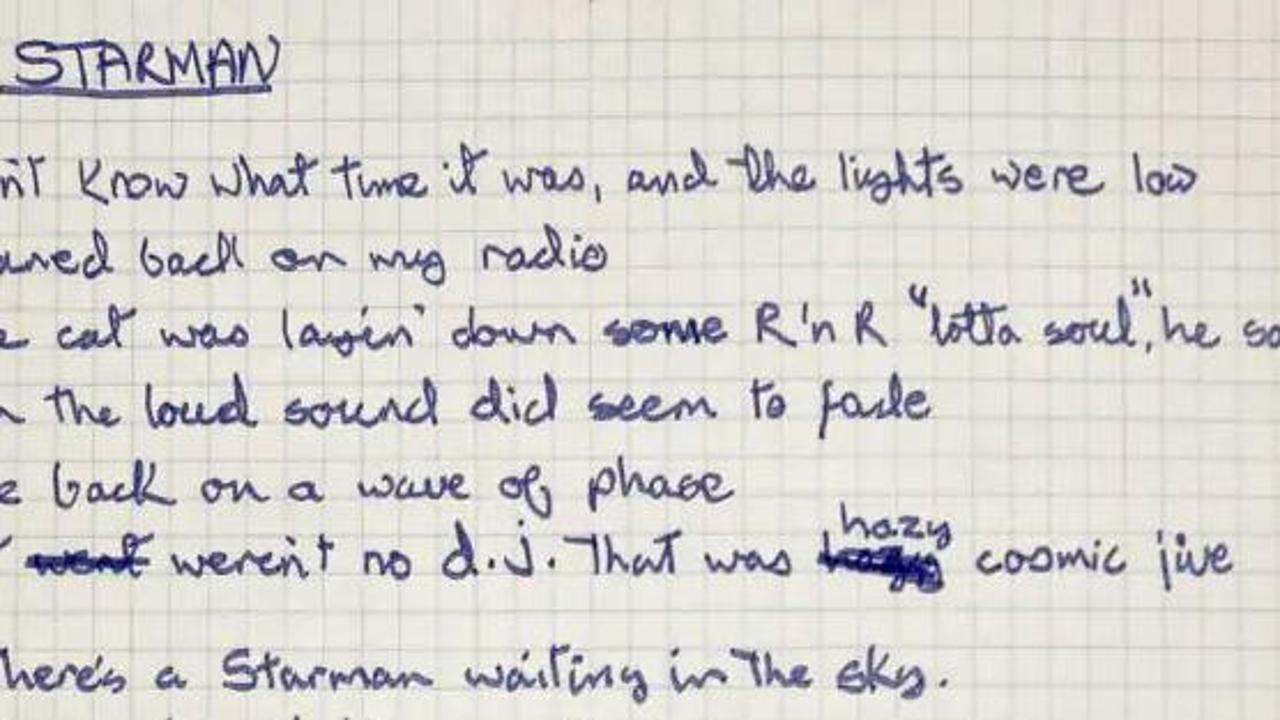 STARMAN
n't know what time it was, and the lights were low
aned back on my radio
e cat was layin' down some R'n R "lotta soul", he sa
n the loud sound did seem to fade
e back on a wave of phase
hazy
weren't no d.j. That was cosmic jive
here's a Starman waiting in the sky.